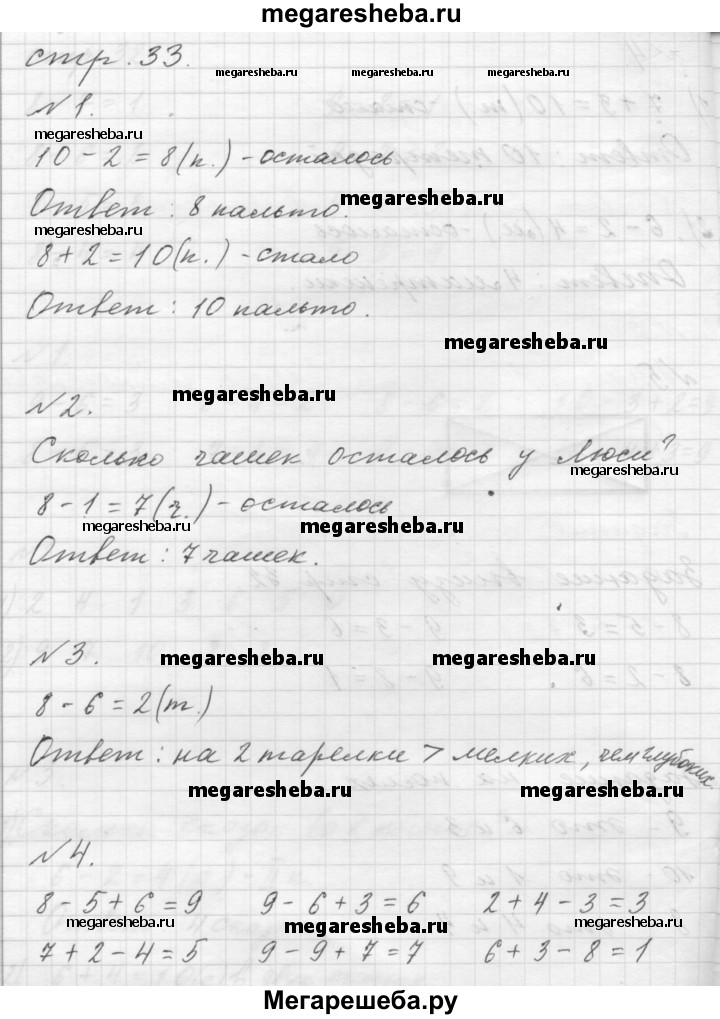 megaresheba.ru
стр. 33.
megaresheba.ru megaresheba.ru
№1.
megaresheba.ru
10 - 2 = 8 (п.) - осталось
Ответ: 8 пальто.
megaresheba.ru
8 + 2 = 10 (п.) - стало
Ответ: 10 пальто.
megaresheba.ru
megaresheba.ru
№2.
Сколько чашек осталось у Люси?
megaresheba.ru
8 - 1 = 7 (ч.) - осталось
megaresheba.ru megaresheba.ru
Ответ: 7 чашек.
№3.
megaresheba.ru megaresheba.ru
8 - 6 = 2 (т.)
Ответ: на 2 тарелки > мелких, чем глубоких.
megaresheba.ru megaresheba.ru
№4.
8 - 5 + 6 = 9 9 - 6 + 3 = 6 2 + 4 - 3 = 3
megaresheba.ru megaresheba.ru megaresheba.ru
7 + 2 - 4 = 5 9 - 9 + 7 = 7 6 + 3 - 8 = 1
Мегарешеба.ру